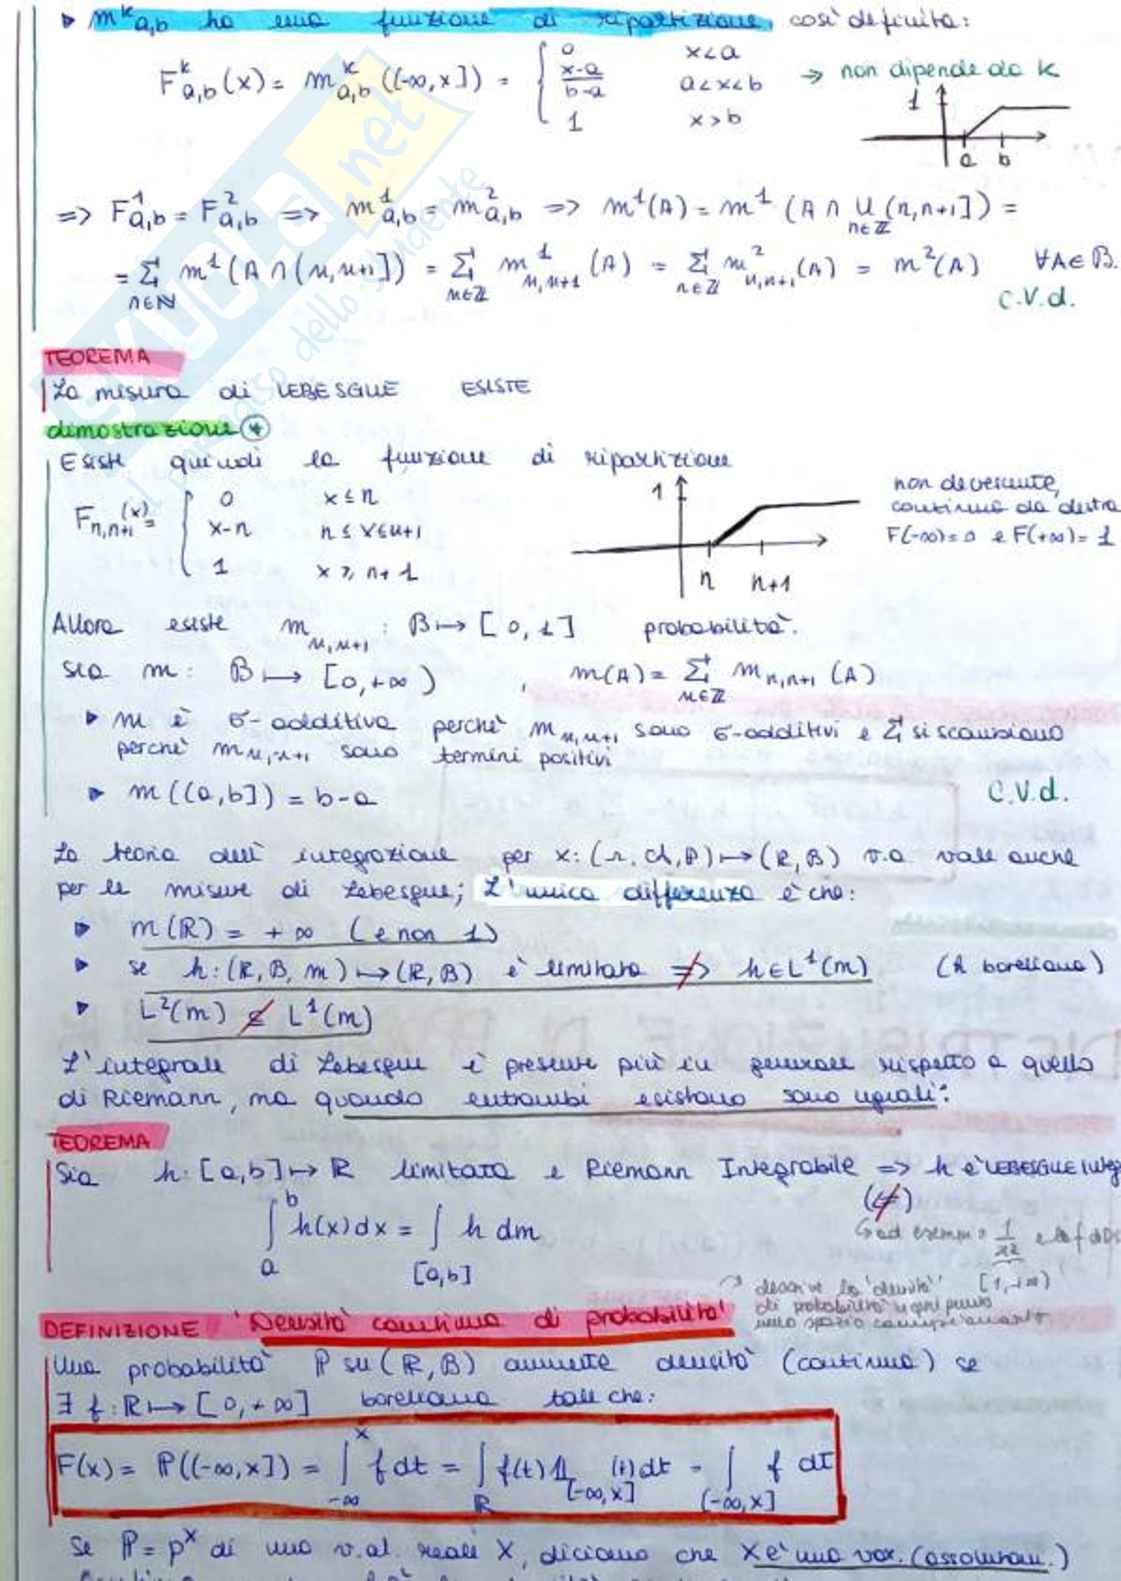 ▸ m^k_{a,b} ha una funzione di ripartizione, così definita:
F^k_{a,b}(x) = m^k_{a,b}((-∞,x]) = { 0 x<a
x-a/b-a a<x<b
1 x>b
⇒ non dipende da k
1
a b
⇒ F^1_{a,b} = F^2_{a,b} ⇒ m^1_{a,b} = m^2_{a,b} ⇒ m^1(A) = m^1(A ∩ ∪_{n∈ℤ} (n,n+1]) =
= Σ_{n∈ℕ} m^1(A ∩ (n,n+1]) = Σ_{n∈ℤ} m^1_{n,n+1}(A) = Σ_{n∈ℤ} m^2_{n,n+1}(A) = m^2(A) ∀A∈B.
C.V.d.
TEOREMA
La misura di LEBESGUE ESISTE
dimostrazione *
Esiste quindi la funzione di ripartizione
F_{n,n+1}(x) = { 0 x≤n
x-n n≤x≤n+1
1 x≥n+1
1
n n+1
non decrescente,
continua da destra
F(-∞)=0 e F(+∞)=1
Allora esiste m_{n,n+1} : B ↦ [0,1] probabilità.
sia m: B ↦ [0,+∞) , m(A) = Σ_{n∈ℤ} m_{n,n+1}(A)
▸ m è σ-additiva perchè m_{n,n+1} sono σ-additivi e Σ si scambiano
perchè m_{n,n+1} sono termini positivi
▸ m((a,b]) = b-a C.V.d.
La teoria dell'integrazione per x: (Ω, A, P) ↦ (R, B) v.a. vale anche
per le misure di Lebesgue; L'unica differenza è che:
▸ m(R) = +∞ (e non 1)
▸ se h: (R, B, m) ↦ (R, B) è limitata ⇏ h∈L^1(m) (h boreliana)
▸ L^2(m) ⊄ L^1(m)
L'integrale di Lebesgue è presente più in generale rispetto a quello
di Riemann, ma quando entrambi esistono sono uguali:
TEOREMA
Sia h: [a,b] ↦ R limitata e Riemann Integrabile ⇒ h è LEBESGUE Integ
(⇍)
∫_a^b h(x)dx = ∫_{[a,b]} h dm
ad esempio 1/x² e la f di
[1,+∞)
descrive la 'densità'
di probabilità in ogni punto
dello spazio campionario
DEFINIZIONE 'Densità continua di probabilità'
Una probabilità P su (R, B) ammette densità (continua) se
∃ f: R ↦ [0,+∞] boreliana tale che:
F(x) = P((-∞,x]) = ∫_{-∞}^x f dt = ∫_R f(t) 1_{(-∞,x]}(t) dt = ∫_{(-∞,x]} f dt
Se P = P^X di una v.al. reale X, diciamo che X è una var. (assolutam.)